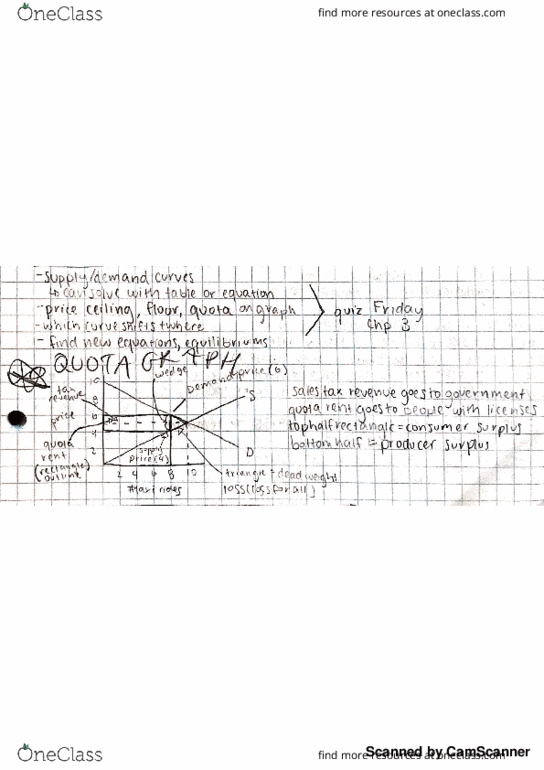 OneClass
find more resources at oneclass.com
-supply/demand curves
↳ can solve with table or equation
-price ceiling, floor, quota on graph
-which curve shifts where
- find new equations, equilibriums
quiz Friday
Chp 3
QUOTA GRAPH
wedge
Demand price (6)
tax
revenue
price
quota
rent
(rectangle)
outline
10
8
6
4
2
S
D
supply
price (4)
2 4 6 8 10
#taxi rides
triangle = dead weight
loss (loss for all)
sales tax revenue goes to government
quota rent goes to people with licenses
top half rectangle = consumer surplus
bottom half = producer surplus
OneClass
find more resources at oneclass.com
Scanned by CamScanner